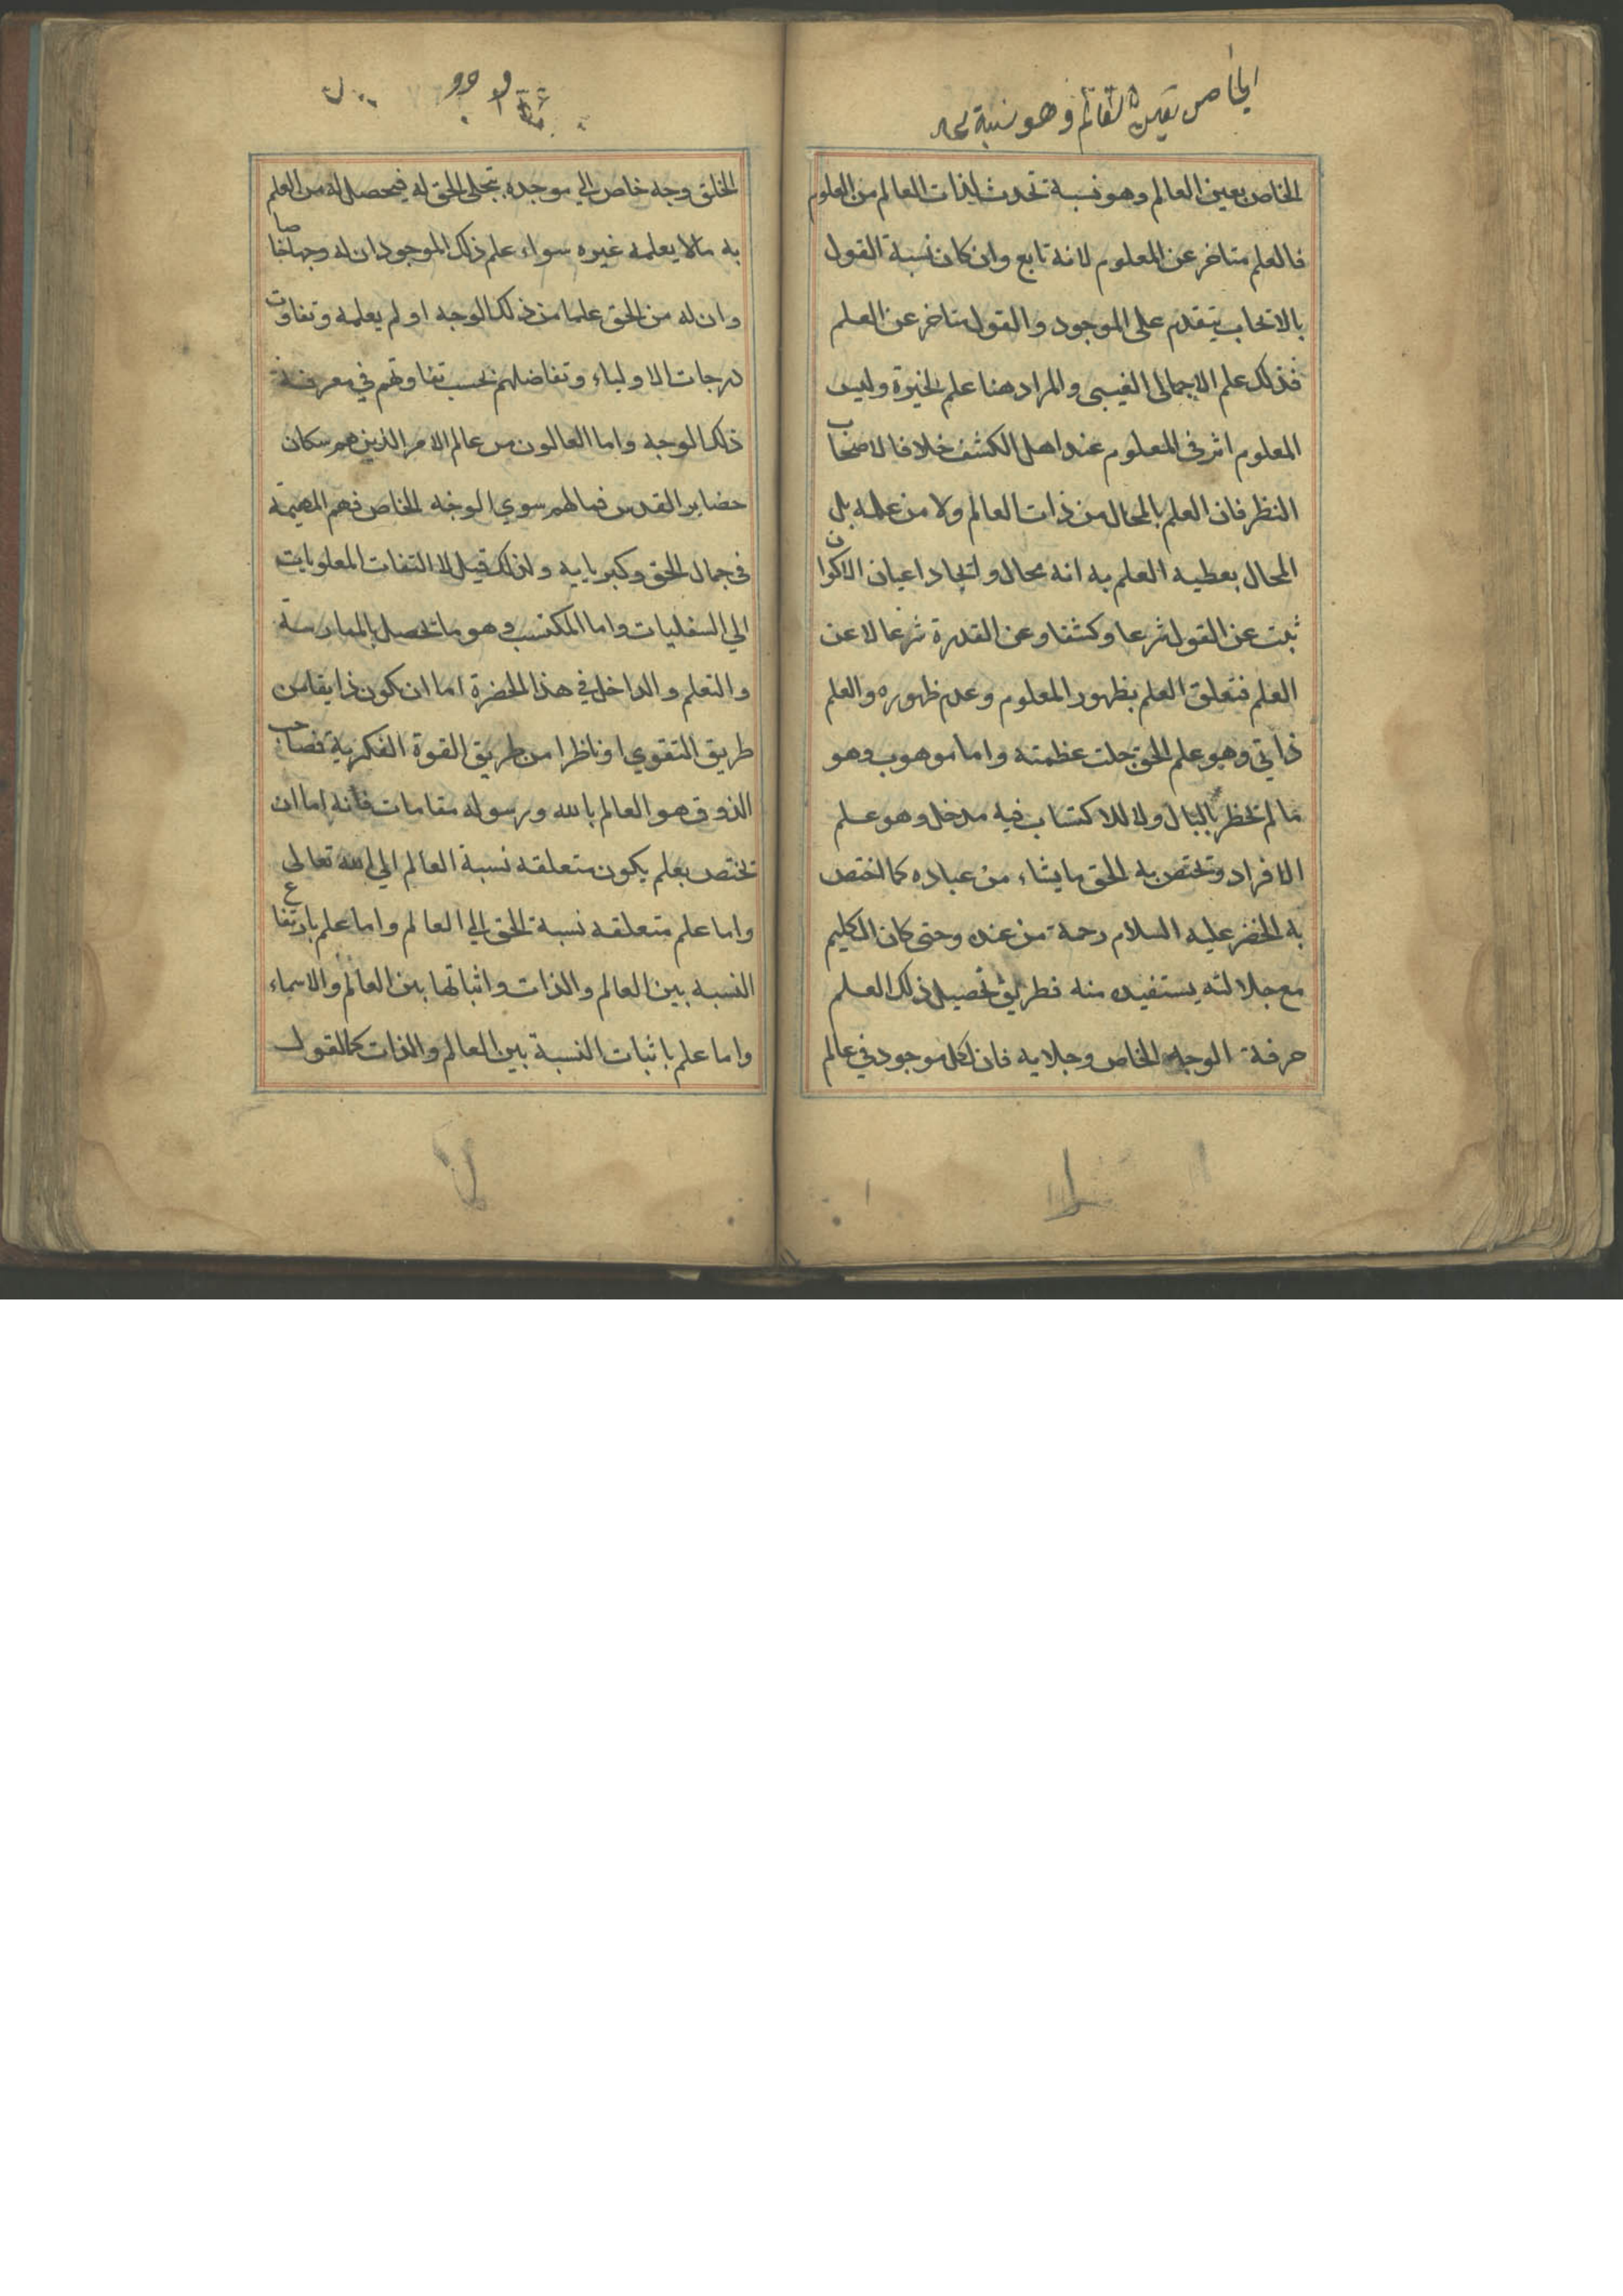 الخاص بعين العالم وهو نسبة
الخاص بعين العالم وهو نسبة تحدث لذات العالم من العلوم
فالعلم متاخر عن المعلوم لانه تابع وان كان نسبة القول
بالايجاب يتقدم على الموجود والقول متاخر عن العلم
فذلك علم الاجمالى الغيبى والمراد هنا علم الخيرة وليس
المعلوم اثر فى المعلوم عند اهل الكشف خلافا لاصحاب
النظر فان العلم بالمحال من ذات العالم ولا من علمه بل
المحال يعطيه العلم به انه محال وايجاد اعيان الاكوان
ثبت عن القول شرعا وكشفا وعن القدرة شرعا لا عن
العلم فتعلق العلم بظهور المعلوم وعدم ظهوره والعلم
ذاتي وهو علم الحق جلت عظمته واما موهوب وهو
ما لم يخطر بالبال ولا للاكتساب فيه مدخل وهو علم
الافراد ويختص به الحق ما يشاء من عباده كما اختص
به الخضر عليه السلام رحمة من عنده وحتى كان الكليم
مع جلالته يستفيده منه فطريق تحصيل ذلك العلم
حرفة الوجه الخاص وجلايه فان لكل موجود في عالم
الخلق وجه خاص الي موجده بتجلى الحق له فيحصل له من العلم
به مالا يعلمه غيره سواء علم ذلك الموجود ان له وجها خاصا
وان له من الحق علما من ذلك الوجه او لم يعلمه وتفاوت
درجات الاولياء وتفاضلهم بحسب تفاوتهم في معرفة
ذلك الوجه واما العالون من عالم الامر الذين هم سكان
حضاير القدس فما لهم سوي الوجه الخاص فهم المهيمة
في جمال الحق وكبريايه ولذلك قيل لا التفات المعلويات
الي السفليات واما المكتسب وهو ما يحصل بالممارسة
والتعلم والداخل في هذا الحضرة اما ان يكون ذايقا من
طريق التقوي او ناظرا من طريق القوة الفكرية فصاحب
الذوق هو العالم بالله ورسوله مقامات فانه اما ان
يختص بعلم يكون متعلقه نسبة العالم الي الله تعالى
واما علم متعلقه نسبة الحق الي العالم واما علم بارتفاع
النسبه بين العالم والذات واثباتها بين العالم والاسماء
واما علم باثبات النسبة بين العالم والذات كالقول